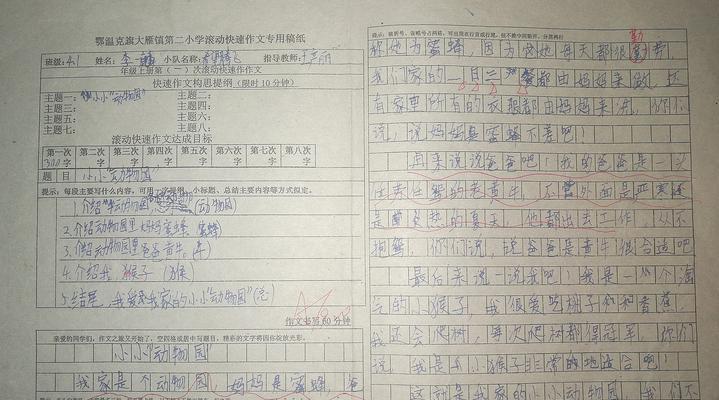 鄂温克旗大雁镇第二小学滚动快速作文专用稿纸
班级:4.1 姓名:李 小队名称: 腾飞 指导教师:
年级上册第(一)次滚动快速作文
快速作文构思提纲(限时10分钟)
主题一:小小"动物园" 主题二:
主题三: 主题四:
主题五: 主题六:
主题七: 主题八:
滚动快速作文达成目标
第一次 第二次 第三次 第四次 第五次 第六次 第七次 第八次
300字 字 字 字 字 字 字 字
题 目 小小"动物园"
提示:每段主要写什么内容,可用 小标题、总结主要内容等方式拟定。
1.介绍"动物园" (动物园)
2.介绍动物园里妈妈蜜蜂 蜜蜂
3.介绍动物园里爸爸黄牛 (牛)
4.介绍我 猴子 (猴
5.结尾,我爱我家的小小"动物园"
作文书写60分钟
亲爱的同学们,作文之旅又开始了,空四格或居中写题目,精彩的文字将因你绽放光彩。
小小"动物园"
我家是个动物园,妈妈是蜜蜂,爸
称她为蜜蜂,因为她每天都很勤费,
我们家的一日三 餐都由妈妈来做,还
有家里所有的衣服都由妈妈来洗,你们
说,说妈妈是蜜蜂不差吧!
再来说说爸爸吧!我的爸爸是一头
任劳任怨的老黄牛,不管外面是严寒还
是 炎热的夏天,他都出去工作,从不
抱怨,你们说,说爸爸是黄牛很合适吧
最后来说一说我吧!我是一个淘
气的小猴子,我很爱吃桃子和香蕉,
我还会爬树,每次爬树都得冠军,你们
说,我是个小猴子非常的地适合吧!
这就是我家的小小动物园,我们不